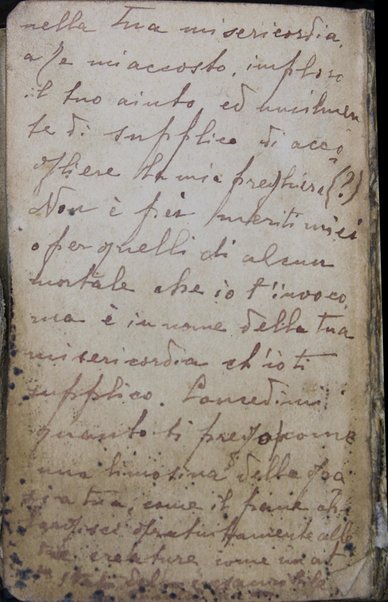 nella tua misericordia.
a Te mi accosto, imploro
il tuo aiuto ed umilmen
te di supplico di acco
gliere la mia preghiera (?)
Non è per meriti miei
o per quelli di alcun
mortale che io t'invoco,
ma è in nome della tua
misericordia ch'io ti
supplico. Concedimi
quanto ti prego come
una limosina della gra
zia tua, come il pane che
gratuitamente alle
tue creature come un at
della